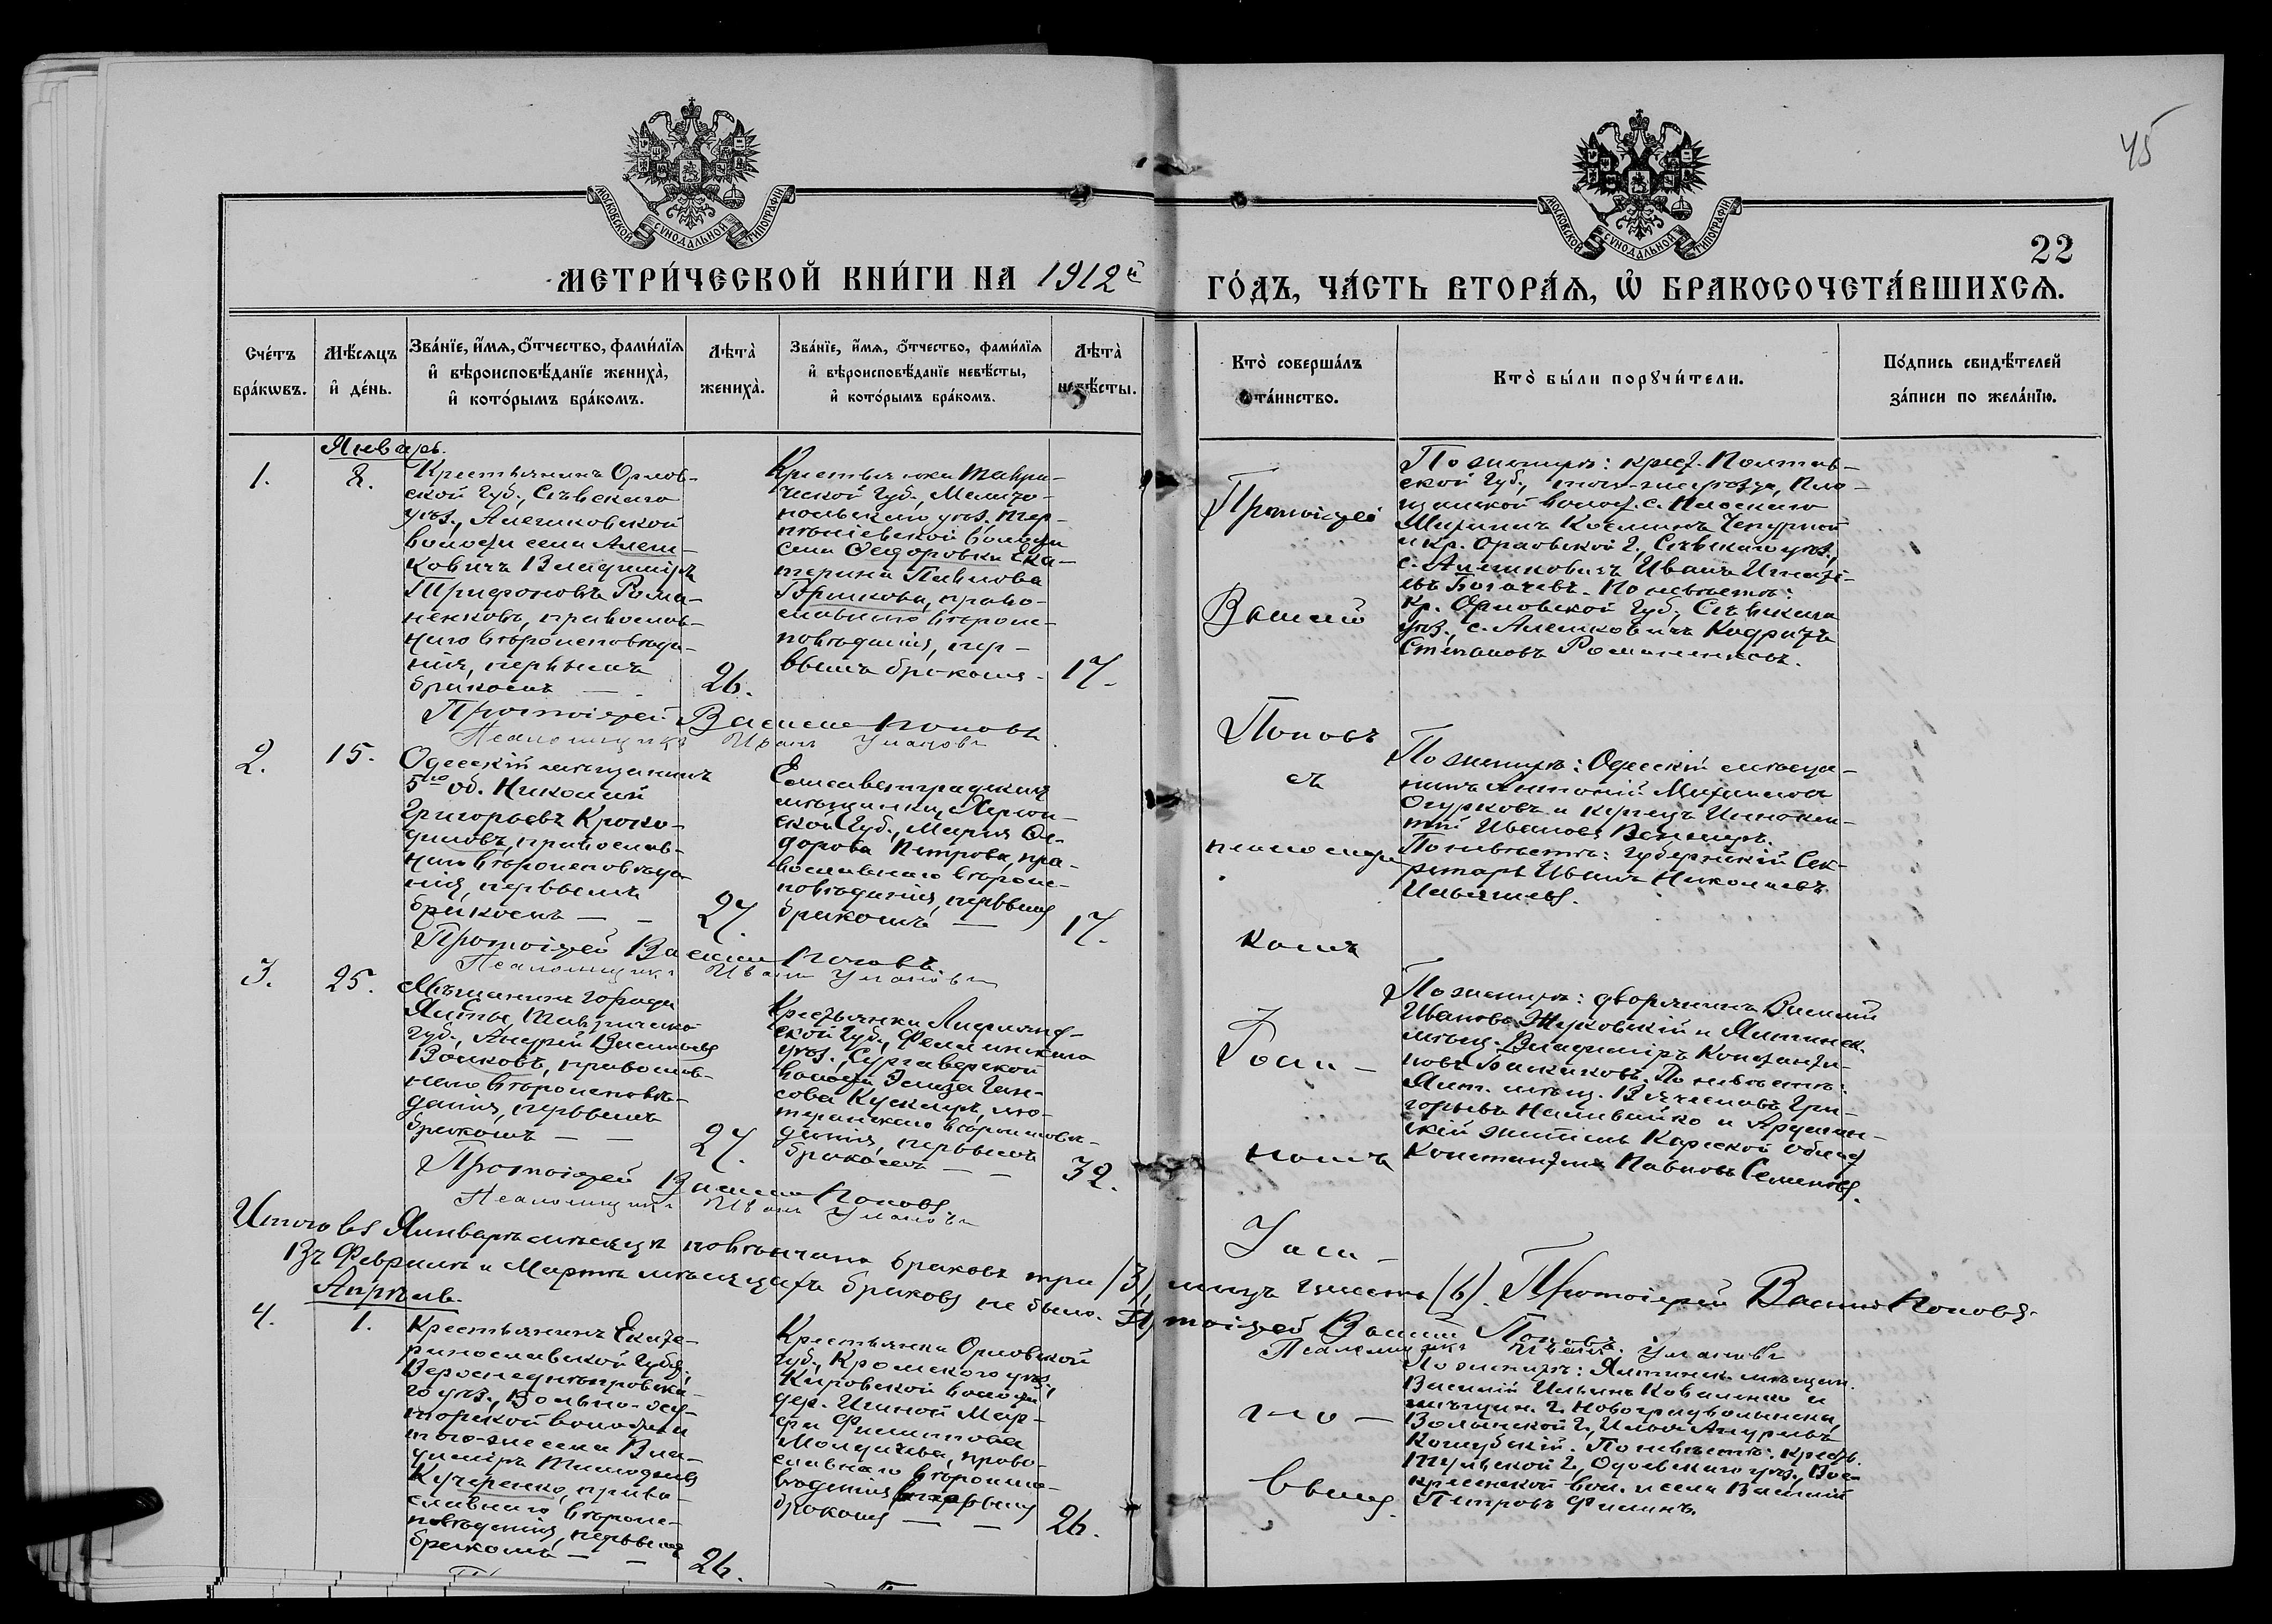 45
МОСКОВСКОЙ СѴНОДАЛЬНОЙ ТИПОГРАФІИ
МОСКОВСКОЙ СѴНОДАЛЬНОЙ ТИПОГРАФІИ
22
МЕТРИ́ЧЕСКОЙ КНИ́ГИ НА 1912й
ГО́ДЪ, ЧА́СТЬ ВТОРА́Ѧ, Ѡ҆ БРАКОСОЧЕТА́ВШИХСѦ.
Сче́тъ
бра́кѡвъ.
Мѣ́сяцъ
и҆ де́нь.
Зва́нїе, и҆́мѧ, ѻ҆́тчество, фами́лїѧ
и҆ вѣроисповѣ́данїе жениха̀,
и҆ кото́рымъ бра́комъ.
Лѣта̀
жениха̀.
Зва́нїе, и҆́мѧ, ѻ҆́тчество, фами́лїѧ
и҆ вѣроисповѣ́данїе невѣ́сты,
и҆ кото́рымъ бра́комъ.
Лѣта̀
невѣ́сты.
Кто̀ соверша́лъ
та́инство.
Кто̀ бы́ли порꙋчи́тели.
По́дпись свидѣ́телей
за́писи по жела́нїю.
Январь.
1.
8.
Крестьянинъ Орлов-
ской губ., Сѣвскаго
уѣз., Алешковской
волости села Алеш-
ковичъ Владиміръ
Трифоновъ Рома-
ненковъ, православ-
наго вѣроисповѣда-
нія, первымъ
бракомъ
26.
Крестьянка Таври-
ческой губ., Мелито-
польскаго уѣз., Тер-
пѣніевской волости
села Федоровки Ека-
терина Павлова
православнаго вѣроис-
повѣданія, пер-
вымъ бракомъ
17.
Протоіерей Василій Поповъ
Псаломщикъ Иванъ Улановъ
По женихѣ: крест. Полтав-
ской губ., того-же уѣзда, Пло-
щанской волост. с. Плоскаго
Косминъ Чепурной
и кр. Орловской г., Сѣвскаго уѣз.,
с. Алешковичъ Иванъ Игнатьевъ
По невѣстѣ:
Кр. Орловской губ., Сѣвскаго
уѣз., с. Алешковичъ
Степановъ Романенковъ.
2.
15.
Одесскій мѣщанинъ
5го об. Николай
Григорьевъ Кроко-
диловъ, православ-
наго вѣроисповѣда-
нія, первымъ
бракомъ
27.
Елисаветградская
мѣщанка, Херсон-
ской губ., Марія Ѳе-
дорова Петрова, пра-
вославнаго вѣроис-
повѣданія, первымъ
бракомъ
17.
Протоіерей Василій Поповъ
Псаломщикъ Иванъ Улановъ
По женихѣ: Одесскій мѣща-
нинъ Антоній Михаиловъ
Огурковъ и купецъ Иннокен-
тій Ивановъ
По невѣстѣ: Губернскій Сек-
ретарь Иванъ Николаевъ
3.
25.
Мѣщанинъ города
Ялты Таврической
губ., Андрей Васильевъ
Волковъ, православ-
наго вѣроисповѣ-
данія, первымъ
бракомъ
27.
Крестьянка Лифлянд-
ской губ., Феллинскаго
уѣз.,
волости Элиза Ган-
сова лю-
теранскаго вѣроисповѣ-
данія, первымъ
бракомъ
32.
Протоіерей Василій Поповъ.
Псаломщикъ Иванъ Улановъ
По женихѣ: дворянинъ Василій
Ивановъ Жуковскій и Ялтинск.
мѣщ. Владиміръ Константи-
новъ По невѣстѣ:
Ялт. мѣщ. Вячеславъ Гри-
горьевъ Наливайко и
житель Карской Област.
Константинъ Павловъ Семеновъ.
Протоіерей
Василій
Поповъ
съ
псаломщи
комъ
Іоан-
номъ
Улано-
вымъ.
Итого въ Январѣ мѣсяцѣ повѣнчано браковъ три /3/, лицъ шесть /6/. Протоіерей Василій Поповъ.
Въ Февралѣ и Мартѣ мѣсяцахъ браковъ не было. Протоіерей Василій Поповъ.
Псаломщикъ Иванъ Улановъ
Апрѣль.
4.
1.
Крестьянинъ Екате-
ринославской губ.,
Верхнеднѣпровска-
го уѣз.,
волости и
того-же села Вла-
диміръ Тимофеевъ
Кучеренко, право-
славнаго вѣроис-
повѣданія, первымъ
бракомъ
26.
Крестьянка Орловской
губ., Кромскаго уѣз.,
волости
дер. Мар-
фа Филиппова
Молдачева, право-
славнаго вѣроиспо-
вѣданія первымъ
бракомъ
26.
По женихѣ: Ялтинск. мѣщан.
Василій Ильинъ Коваленко и
мѣщан. г. Новоградволынска,
Волынской г., Илья Андреевъ
По невѣстѣ: крест.
Тульской г., Одоевскаго уѣз., Вос-
кресенской вол. и села Василій
Петровъ Филинъ.